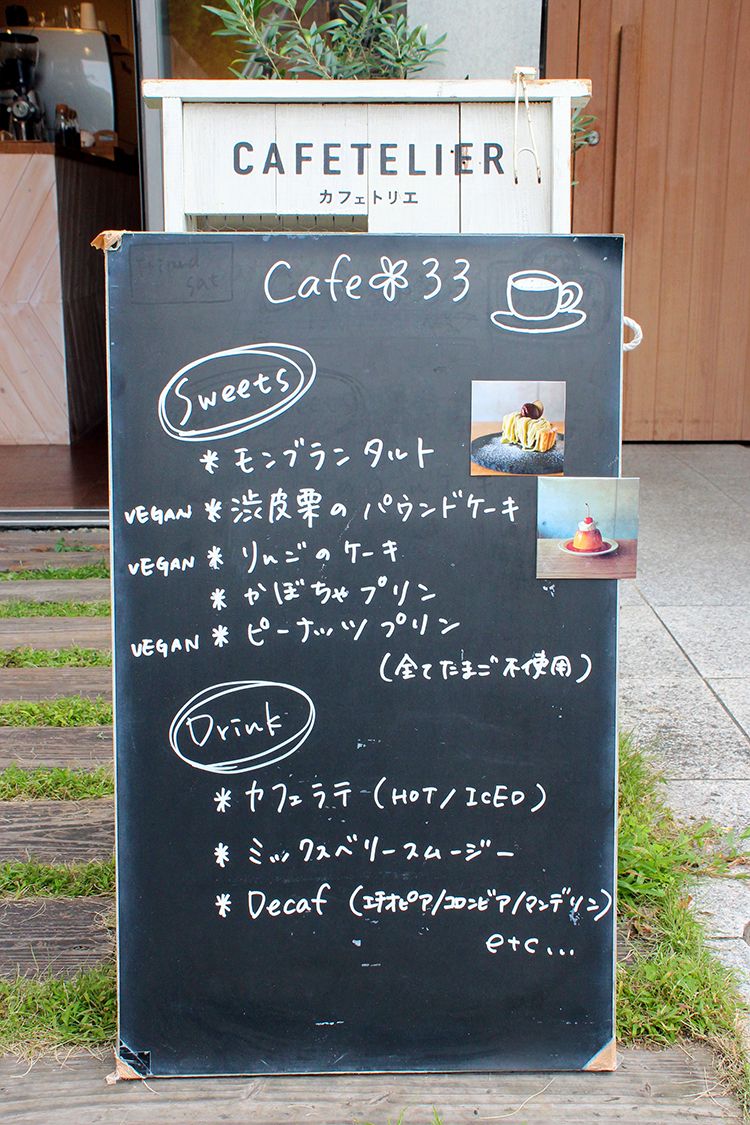 CAFETELIER
カフェトリエ
Cafe 33
Sweets
* モンブランタルト
VEGAN * 渋皮栗のパウンドケーキ
VEGAN * りんごのケーキ
* かぼちゃプリン
VEGAN * ピーナッツプリン
(全てたまご不使用)
Drink
* カフェラテ (HOT/ICED)
* ミックスベリースムージー
* Decaf (エチオピア/コロンビア/マンデリン)
etc...